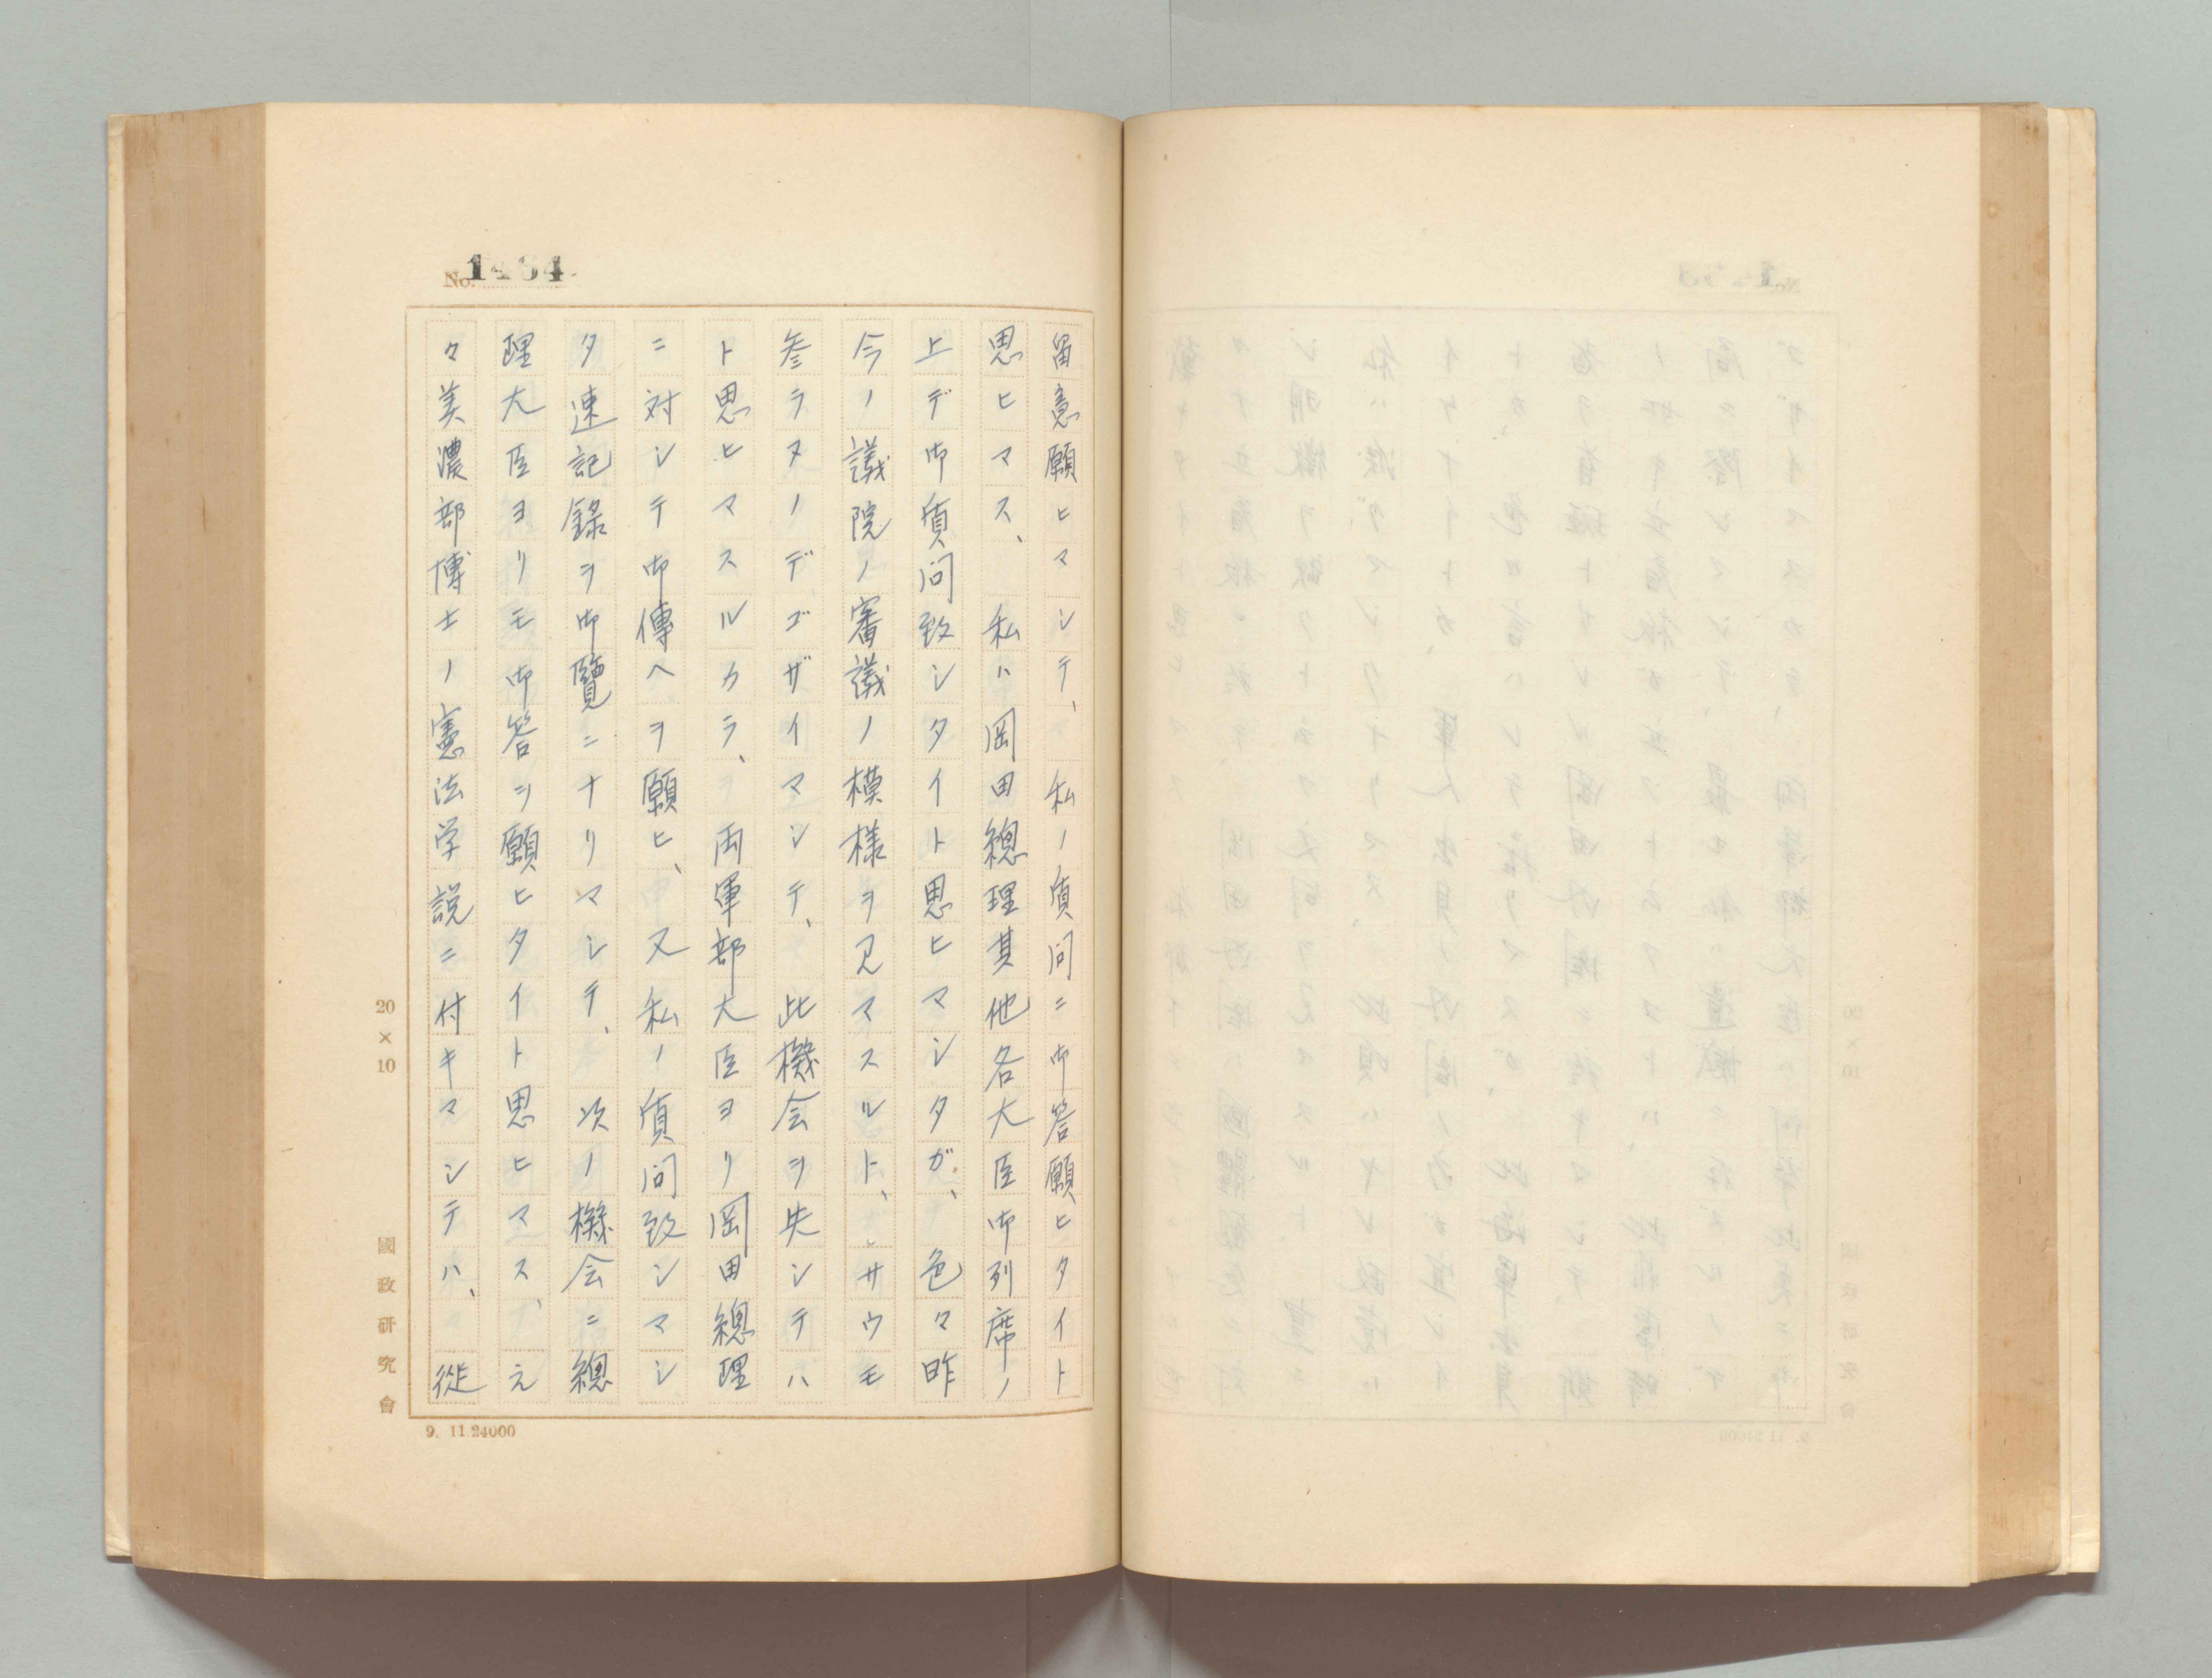 No. 1464
留意願ヒマシテ、私ノ質問ニ御答願ヒタイト
思ヒマス、　私ハ岡田總理其他各大臣御列席ノ
上デ御質問致シタイト思ヒマシタガ、色々昨
今ノ議院ノ審議ノ模様ヲ見マスルト、サウモ
參ラヌノデゴザイマシテ、此機会ヲ失シテハ
ト思ヒマスルカラ、両軍部大臣ヨリ岡田總理
ニ対シテ御傳ヘヲ願ヒ、又私ノ質問致シマシ
タ速記録ヲ御覽ニナリマシテ、次ノ機会ニ總
理大臣ヨリモ御答ヲ願ヒタイト思ヒマス、元
々美濃部博士ノ憲法学説ニ付キマシテハ、從
20×10
國政研究會
9. 11.24000